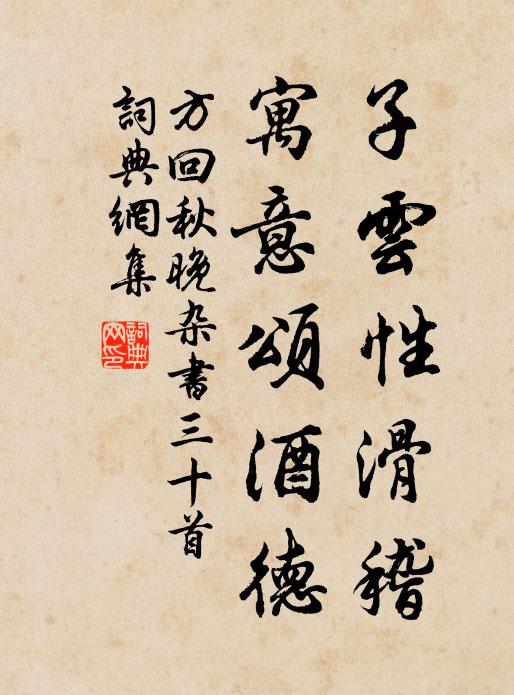 子雲性滑稽
寓意頌酒德
方回秋晚杂書三十首
詞典網集
詞典网印